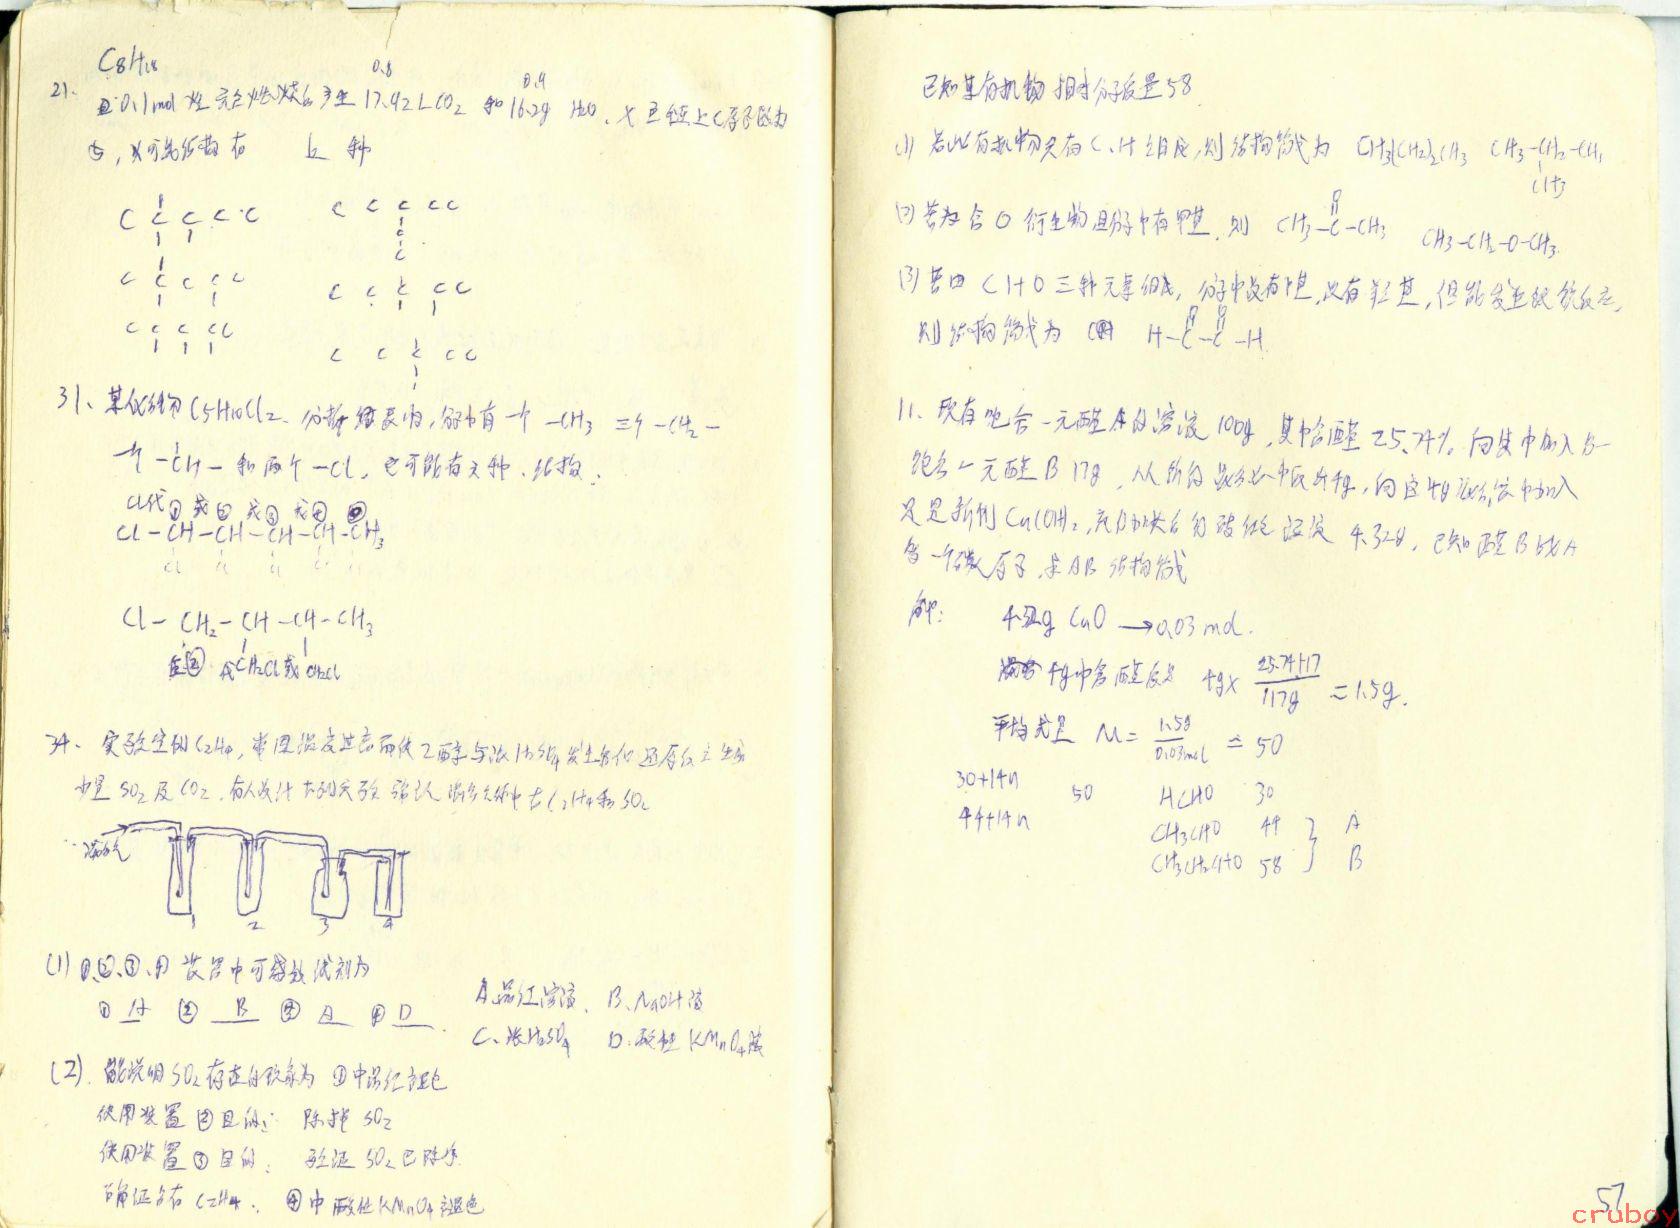 C8H18
21. 0.1mol 烃完全燃烧后产生 17.92L CO2 和 16.2g H2O, X 且主链上C原子数为
0.8
0.9
5, X可能结构有 七 种
C C C C C
C C C C C
C
C
C C C C C
C C C C C
C C C C C
C C C C C
31、某化合物 C5H10Cl2 分析结果表明,分子中有一个 -CH3 三个 -CH2-
一个 -CH- 和两个 -Cl, 它可能有 种 结构.
Cl代①或②或③或④
Cl-CH-CH-CH-CH-CH3
Cl-CH2-CH-CH-CH3
CH2Cl或CH2Cl
34、实验室制C2H4,常因温度过高而使乙醇与浓H2SO4发生氧化还原反应生成
少量 SO2 及 CO2. 有人设计下列实验确认混合气体中有C2H4和SO2
混合气
1 2 3 4
(1) ①、②、③、④ 装置中可盛放试剂为
① A ② B ③ A ④ D.
A.品红溶液. B、NaOH液
C、浓H2SO4 D.酸性KMnO4液
(2). 能说明SO2存在的现象为 ①中品红褪色
使用装置②目的: 除掉 SO2
使用装置③目的: 验证 SO2已除净.
确证含有 C2H4. ④中酸性KMnO4褪色
已知某有机物相对分子质量58
(1) 若此有机物只有C、H组成,则结构简式为 CH3(CH2)2CH3 CH3-CH2-CH3
CH3
(2) 若为含O衍生物且分子中有甲基, 则 CH3-C-CH3 CH3-CH2-O-CH3.
O
(3) 若由 C H O 三种元素组成, 分子中没有甲基,没有羟基,但能发生银镜反应,
则结构简式为 H-C-C-H.
O O
11. 现有饱合一元醛A的溶液 100g, 其中含醛 25.74%. 向其中加入另一
饱合一元醛B 17g, 从所得混合液中取出4g, 向这4g混合液中加入
足量新制Cu(OH)2, 充分加热后得砖红色沉淀 4.32g, 已知醛B比A
多一个碳原子, 求AB结构简式
解: 4.32g Cu2O → 0.03 mol.
4g中含醛质量 4g× 25.74+17
117g = 1.5g.
平均式量 M = 1.5g
0.03mol ≐ 50
30+14n 50 HCHO 30
44+14n CH3CHO 44 } A
CH3CH2CHO 58 } B
57
cruboy